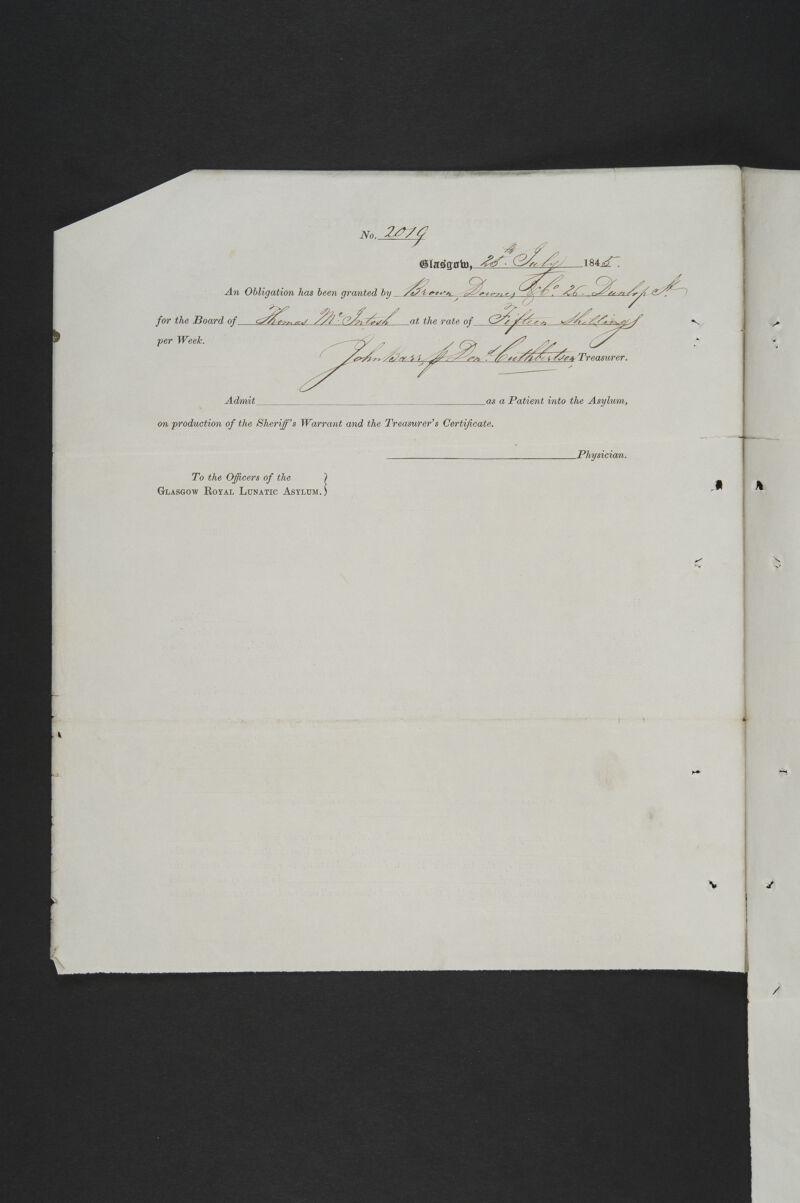 No. 2019
Glasgow, 25th July 1845.
An Obligation has been granted by Brown, Downes & Co. 26 Dunlop St.
for the Board of Thomas McIntosh at the rate of Fifteen Shillings
per Week.
John Barr p Don. Cuthbertson Treasurer.
Admit as a Patient into the Asylum,
on production of the Sheriff's Warrant and the Treasurer's Certificate.
Physician.
To the Officers of the
GLASGOW ROYAL LUNATIC ASYLUM.